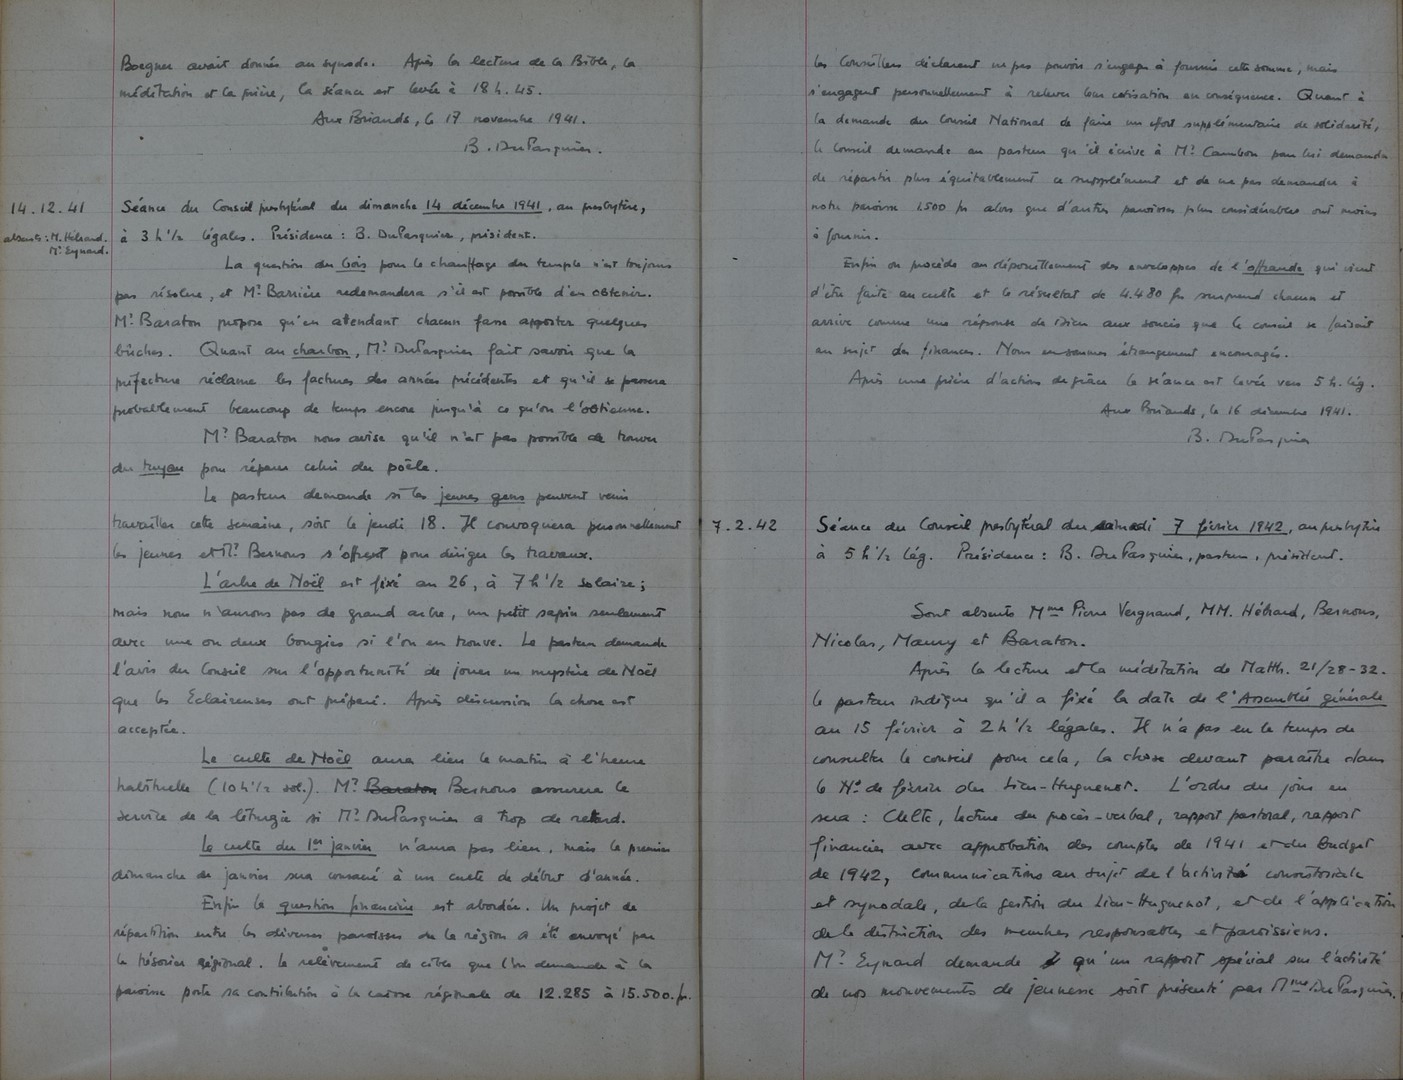 Boegner avait donnée au synode. Après la lecture de la Bible, la
méditation et la prière, la séance est levée à 18 h. 45.
Aux Briands, le 17 novembre 1941.
B. DuPasquier.
14.12.41
absents : M. Hébrard.
Mr. Eynard.
Séance du Conseil presbytéral du dimanche 14 décembre 1941, au presbytère,
à 3 h ½ légales. Présidence : B. DuPasquier, président.
La question du bois pour le chauffage du temple n'est toujours
pas résolue, et Mr. Barrière redemandera s'il est possible d'en obtenir.
Mr. Baraton propose qu'en attendant chacun fasse apporter quelques
bûches. Quant au charbon, Mr. DuPasquier fait savoir que la
préfecture réclame les factures des années précédentes et qu'il se passera
probablement beaucoup de temps encore jusqu'à ce qu'on l'obtienne.
Mr. Baraton nous avise qu'il n'est pas possible de trouver
du tuyau pour réparer celui du poêle.
Le pasteur demande si les jeunes gens peuvent venir
travailler cette semaine, soit le jeudi 18. Il convoquera personnellement
les jeunes et Mr. Bernous s'offrent pour diriger les travaux.
L'arbre de Noël est fixé au 26, à 7 h ½ solaire ;
mais nous n'aurons pas de grand arbre, un petit sapin seulement
avec une ou deux bougies si l'on en trouve. Le pasteur demande
l'avis du Conseil sur l'opportunité de jouer un mystère de Noël
que les Eclaireuses ont préparé. Après discussion la chose est
acceptée.
Le culte de Noël aura lieu le matin à l'heure
habituelle (10 h ½ sol.). Mr. Baraton Bernous assurera le
service de la liturgie si Mr. DuPasquier a trop de retard.
Le culte du 1er janvier n'aura pas lieu, mais le premier
dimanche de janvier sera consacré à un culte de début d'année.
Enfin la question financière est abordée. Un projet de
répartition entre les diverses paroisses de la région a été envoyé par
le trésorier régional. Le relèvement de cible que l'on demande à la
paroisse porte sa contribution à la caisse régionale de 12.285 à 15.500. fr.
les Conseillers déclarent ne pas pouvoir s'engager à fournir cette somme, mais
s'engagent personnellement à relever leur cotisation en conséquence. Quant à
la demande du Conseil National de faire un effort supplémentaire de solidarité,
le Conseil demande au pasteur qu'il écrive à Mr. Cambon pour lui demander
de répartir plus équitablement ce supplément et de ne pas demander à
notre paroisse 1.500 fr alors que d'autres paroisses plus considérables ont moins
à fournir.
Enfin on procède au dépouillement des enveloppes de l'offrande qui vient
d'être faite au culte et le résultat de 4.480 fr surprend chacun et
arrive comme une réponse de Dieu aux soucis que le conseil se faisait
au sujet des finances. Nous en sommes étrangement encouragés.
Après une prière d'actions de grâce la séance est levée vers 5 h. lég.
Aux Briands, le 16 décembre 1941.
B. DuPasquier
7.2.42
Séance du Conseil presbytéral du samedi 7 février 1942, au presbytère
à 5 h ½ lég. Présidence : B. DuPasquier, pasteur, président.
Sont absents Mme Pierre Vergnaud, MM. Hébrard, Bernous,
Nicolas, Maury et Baraton.
Après la lecture et la méditation de Matth. 21/28-32.
le pasteur indique qu'il a fixé la date de l'Assemblée générale
au 15 février à 2 h ½ légales. Il n'a pas eu le temps de
consulter le conseil pour cela, la chose devant paraître dans
le No de février du Lien-Huguenot. L'ordre du jour en
sera : Culte, lecture du procès-verbal, rapport pastoral, rapport
financier avec approbation des comptes de 1941 et du budget
de 1942, communications au sujet de l'activité consistoriale
et synodale, de la gestion du Lien-Huguenot, et de l'application
de la distinction des membres responsables et paroissiens.
Mr. Eynard demande qu'un rapport spécial sur l'activité
de nos mouvements de jeunesse soit présenté par Mme DuPasquier.